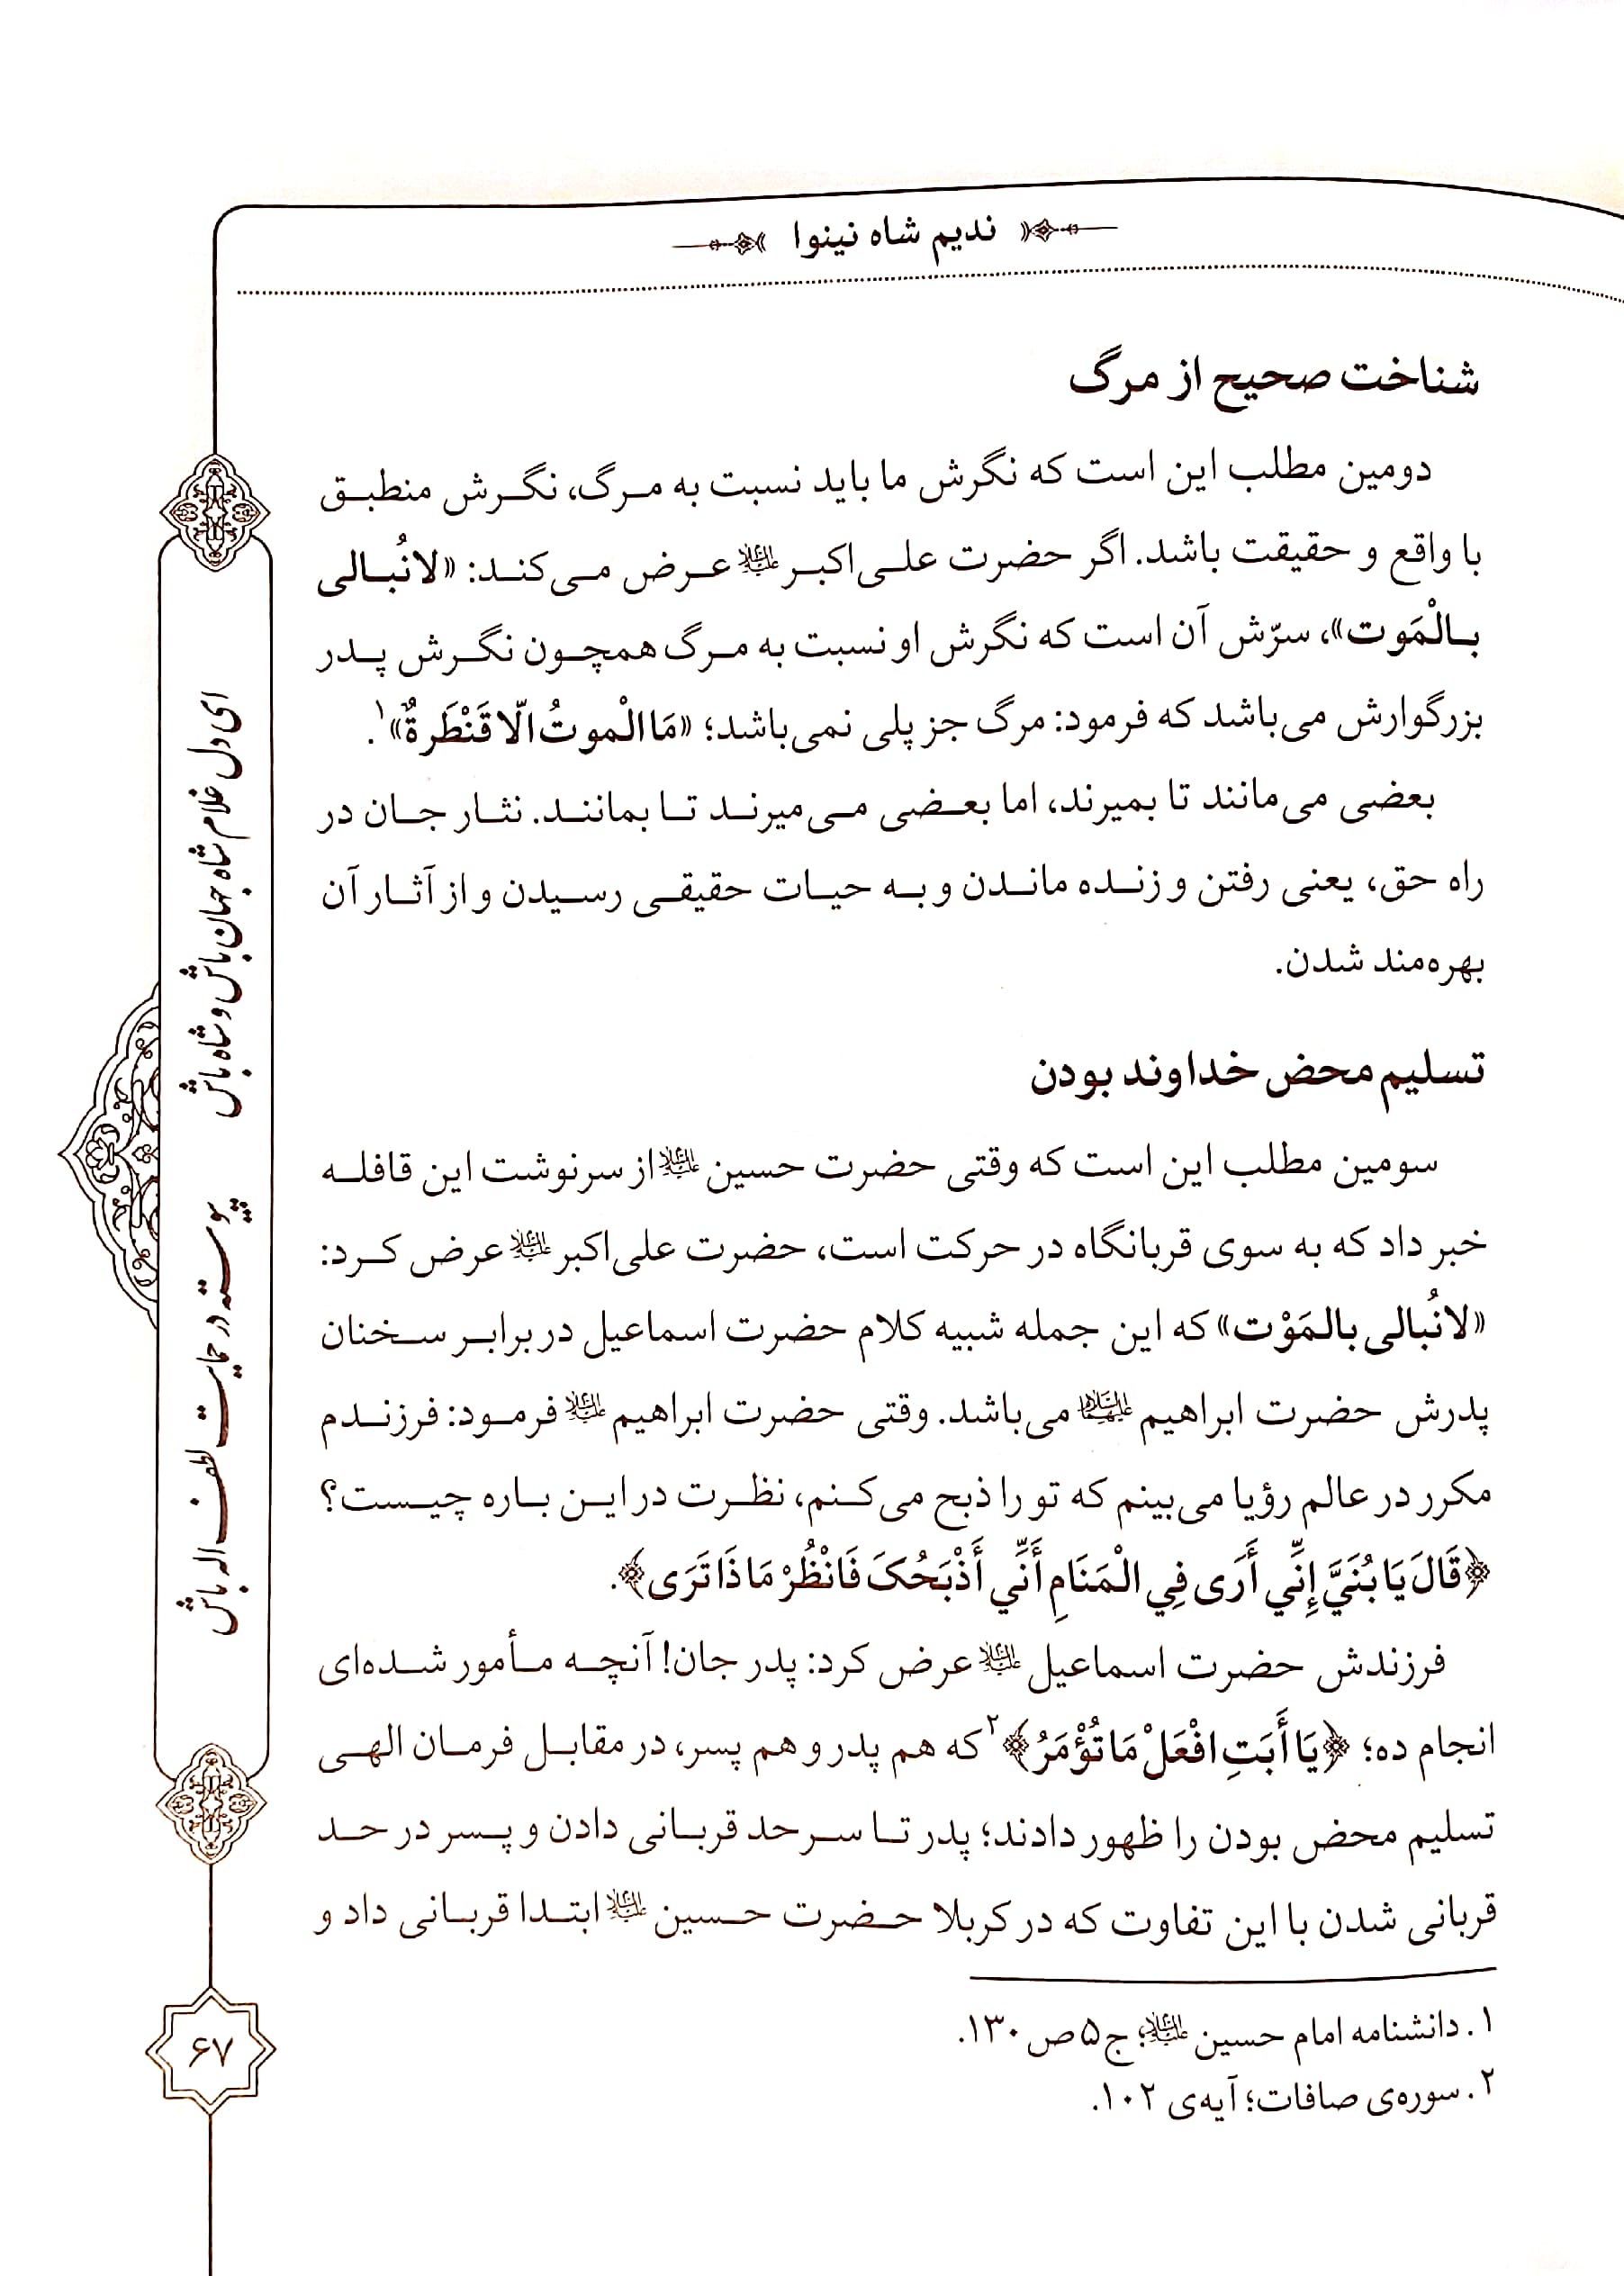 ندیم شاه نینوا
شناخت صحیح از مرگ
دومین مطلب این است که نگرش ما باید نسبت به مرگ، نگرش منطبق
با واقع و حقیقت باشد. اگر حضرت علی‌اکبر علیه‌السلام عرض می‌کند: «لانُبالی
بالْمَوت»، سرّش آن است که نگرش او نسبت به مرگ همچون نگرش پدر
بزرگوارش می‌باشد که فرمود: مرگ جز پلی نمی‌باشد؛ «مَا الْموتُ الّا قَنْطَرةٌ»۱.
بعضی می‌مانند تا بمیرند، اما بعضی می‌میرند تا بمانند. نثار جان در
راه حق، یعنی رفتن و زنده ماندن و به حیات حقیقی رسیدن و از آثار آن
بهره‌مند شدن.
تسلیم محض خداوند بودن
سومین مطلب این است که وقتی حضرت حسین علیه‌السلام از سرنوشت این قافله
خبر داد که به سوی قربانگاه در حرکت است، حضرت علی‌اکبر علیه‌السلام عرض کرد:
«لانُبالی بالمَوْت» که این جمله شبیه کلام حضرت اسماعیل در برابر سخنان
پدرش حضرت ابراهیم علیهماالسلام می‌باشد. وقتی حضرت ابراهیم علیه‌السلام فرمود: فرزندم
مکرر در عالم رؤیا می‌بینم که تو را ذبح می‌کنم، نظرت در این باره چیست؟
﴿قَالَ يَا بُنَيَّ إِنِّي أَرَى فِي الْمَنَامِ أَنِّي أَذْبَحُکَ فَانْظُرْ مَاذَا تَرَى﴾.
فرزندش حضرت اسماعیل علیه‌السلام عرض کرد: پدر جان! آنچه مأمور شده‌ای
انجام ده؛ ﴿يَا أَبَتِ افْعَلْ مَا تُؤْمَرُ﴾۲ که هم پدر و هم پسر، در مقابل فرمان الهی
تسلیم محض بودن را ظهور دادند؛ پدر تا سرحد قربانی دادن و پسر در حد
قربانی شدن با این تفاوت که در کربلا حضرت حسین علیه‌السلام ابتدا قربانی داد و
۱. دانشنامه امام حسین علیه‌السلام؛ ج۵ ص۱۳۰.
۲. سوره‌ی صافات؛ آیه‌ی ۱۰۲.
ای دل غلام شاه جهان باش و شاه باش پیوسته در حمایت لطف اله باش
۶۷